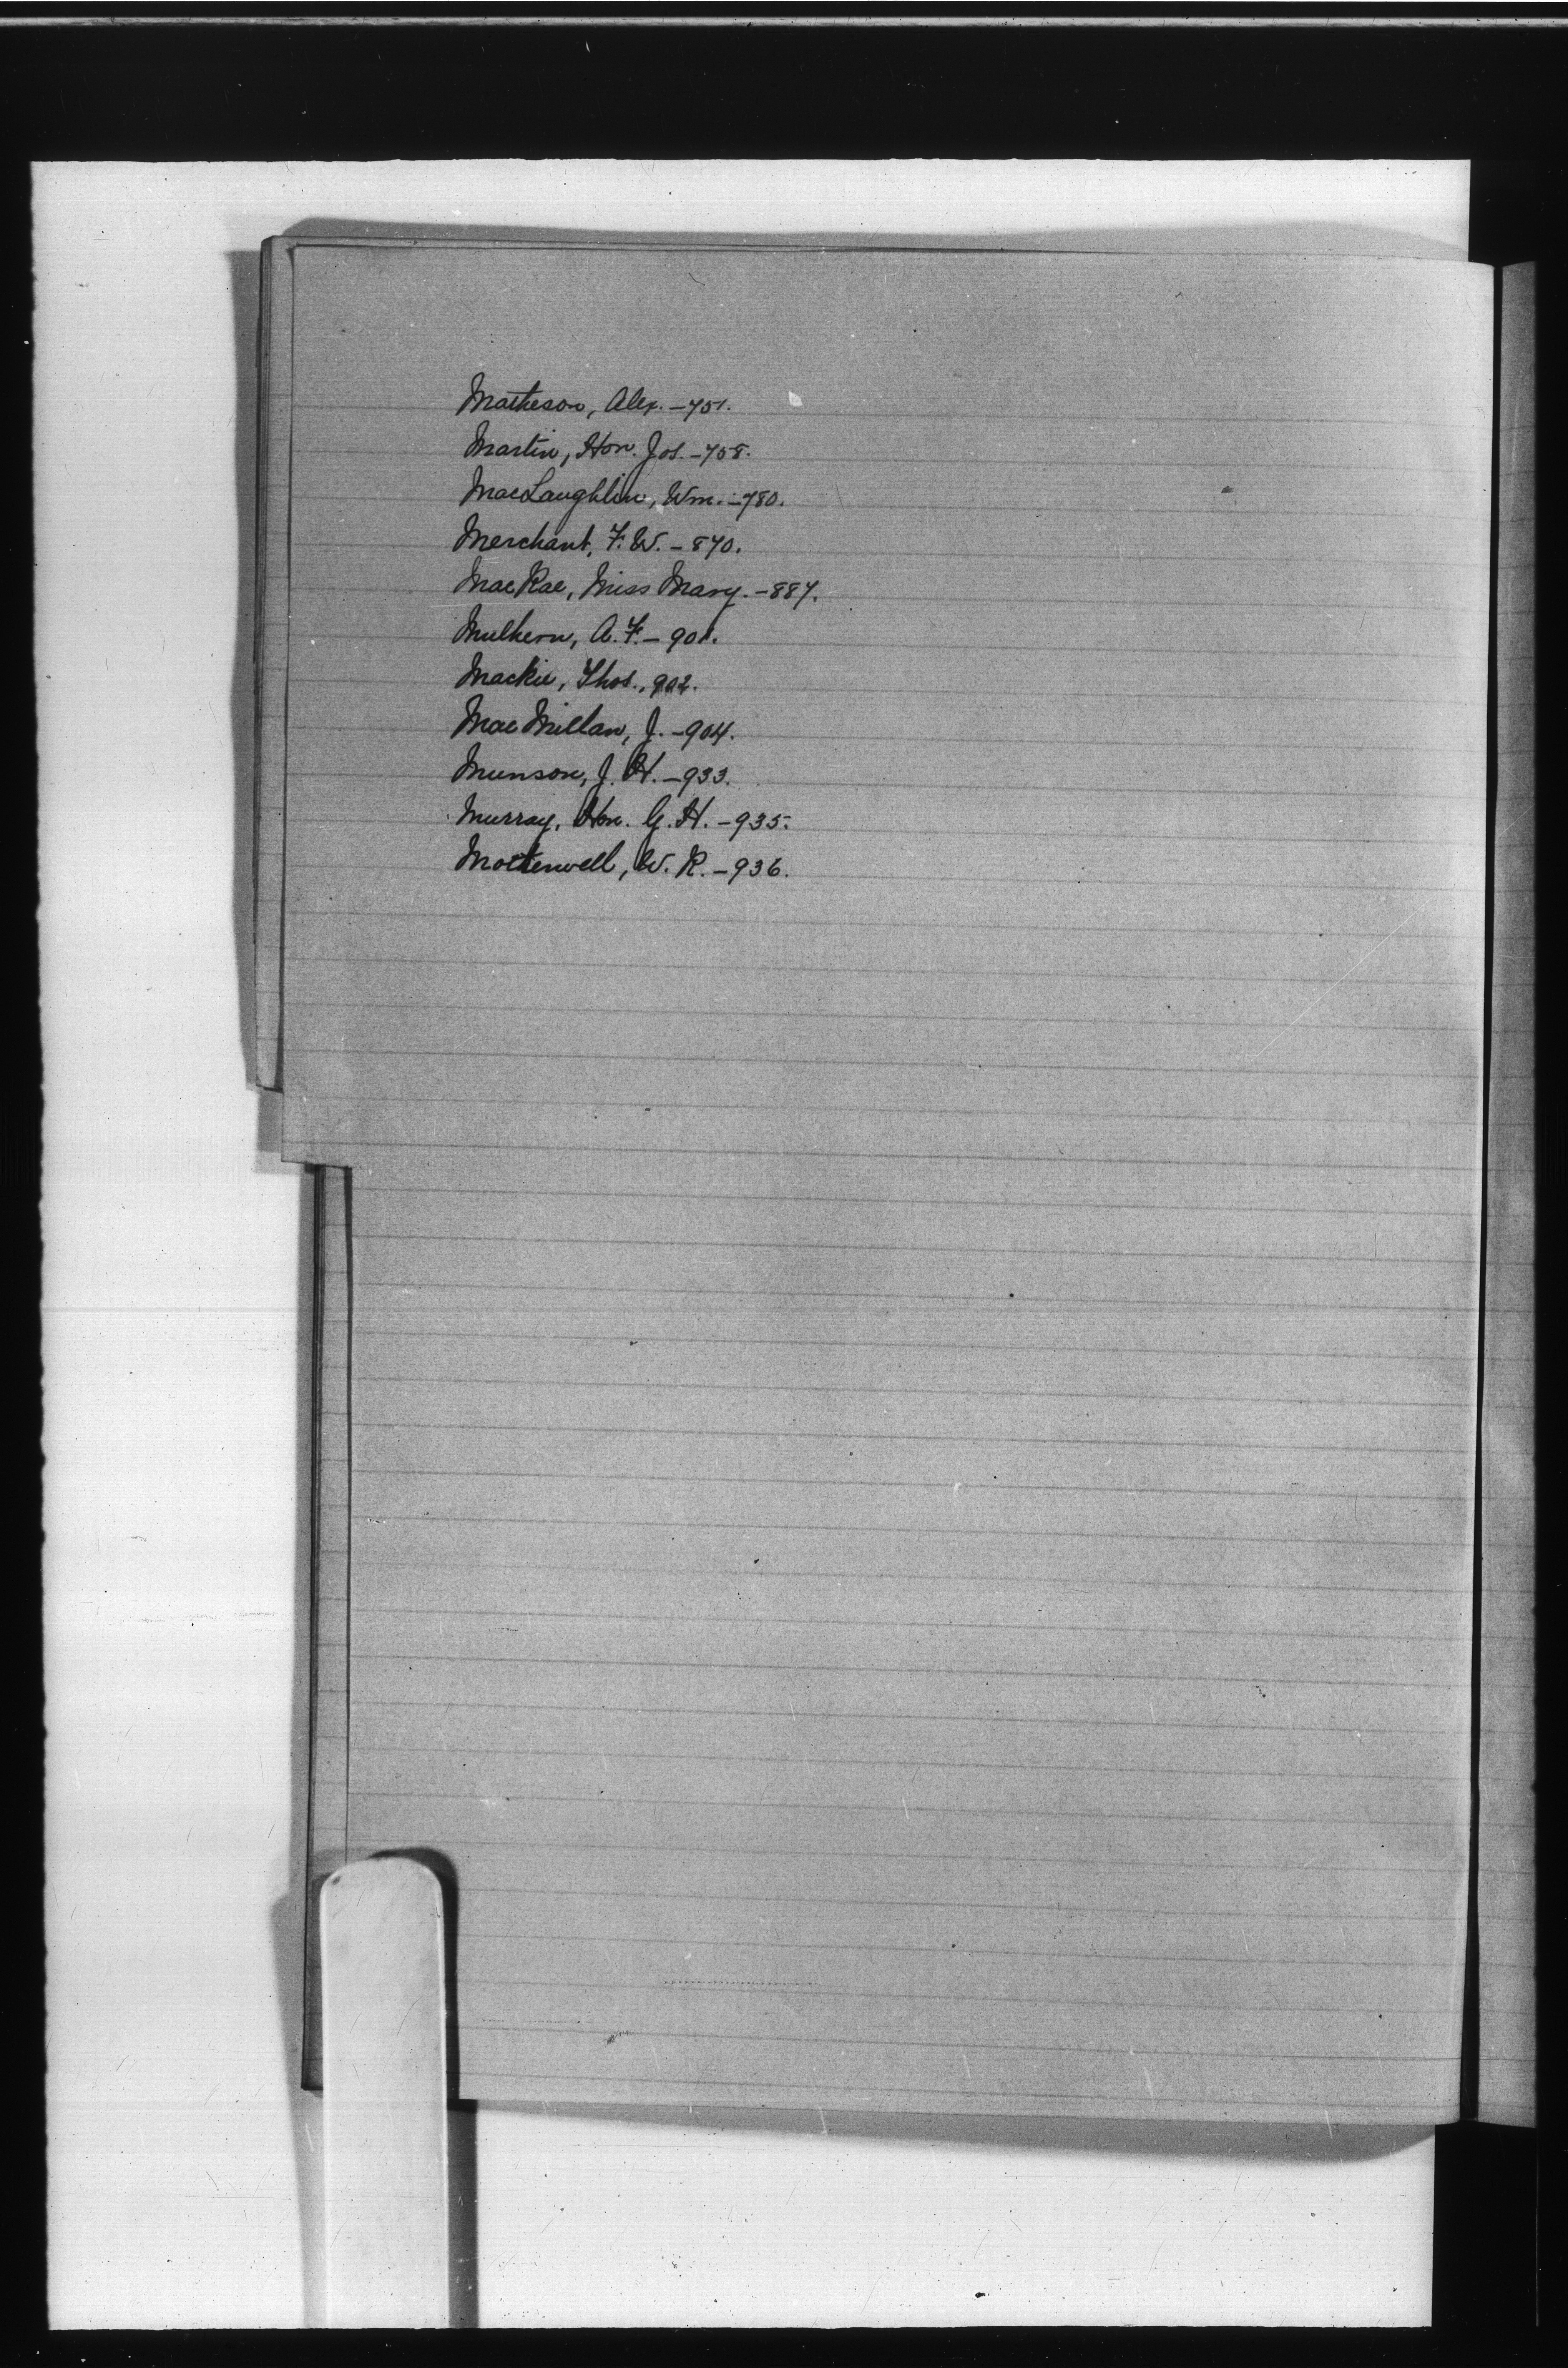 Matheson, Alex. -751.
Martin, Hon. Jos. -758.
MacLaughlin, Wm. -780.
Merchant, F. W. - 870.
MacRae, Miss Mary. -887.
Mulhern, A. F. - 901.
Mackie, Thos., 902.
MacMillan, J. -904.
Munson, J. H. -933.
Murray, Hon. G. H. -935.
Mothenwell, W. R. -936.